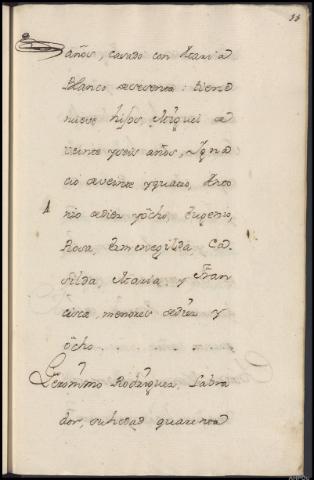 años, casado con Maria
Blanco de sesenta: tiene
nueve hijos, Miguel de
veinte y seis años, Igna
cio de veinte y quatro, Anto
nio de diez y ocho, Eugenio,
Rosa, Ermenegilda, Ca
silda, Maria, y Fran
cisca, menores de diez y
ocho
Geronimo Rodriguez, Labra
dor, su hedad quarenta